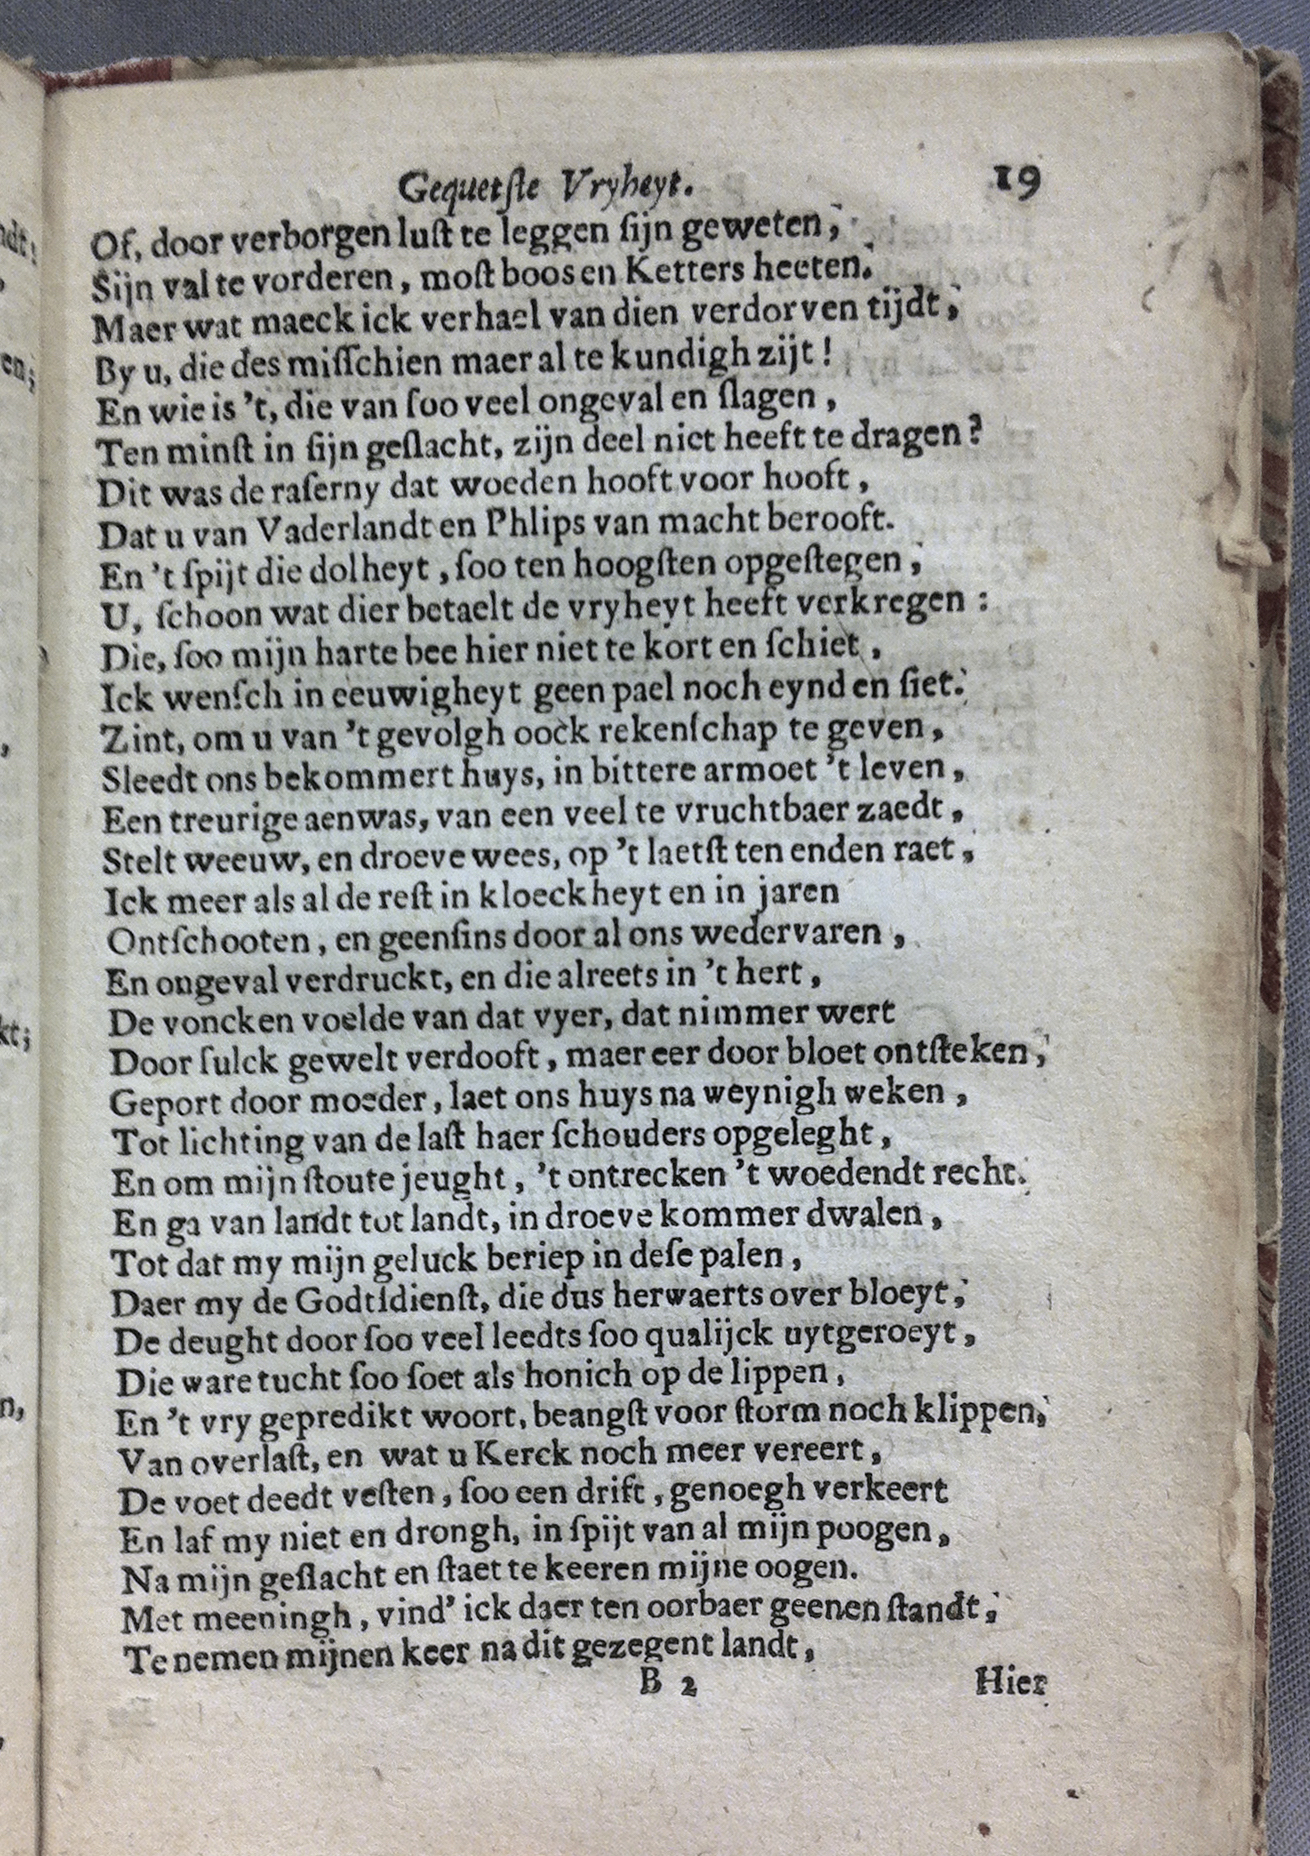 Gequetſte Vryheyt. 19
Of, door verborgen luſt te leggen ſijn geweten;
Sijn val te vorderen, moſt boos en Ketters heeten.
Maer wat maeck ick verhael van dien verdorven tijdt;
By u, die des miſſchien maer al te kundigh zijt!
En wie is 't, die van ſoo veel ongeval en ſlagen,
Ten minſt in ſijn geſlacht, zijn deel niet heeft te dragen?
Dit was de raſerny dat woeden hooft voor hooft,
Dat u van Vaderlandt en Phlips van macht berooft.
En 't ſpijt die dolheyt, ſoo ten hoogſten opgeſtegen;
U, ſchoon wat dier betaelt de vryheyt heeft verkregen:
Die, ſoo mijn harte bee hier niet te kort en ſchiet,
Ick wenſch in eeuwigheyt geen pael noch eynd en ſiet.
Zint, om u van 't gevolgh oock rekenſchap te geven,
Sleedt ons bekommert huys, in bittere armoet 't leven,
Een treurige aenwas, van een veel te vruchtbaer zaedt,
Stelt weeuw, en droeve wees, op 't laetſt ten enden raet,
Ick meer als al de reſt in kloeckheyt en in jaren
Ontſchooten, en geenſins door al ons wedervaren,
En ongeval verdruckt, en die alreets in 't hert,
De voncken voelde van dat vyer, dat nimmer wert
Door ſulck gewelt verdooft, maer eer door bloet ontſteken;
Geport door moeder, laet ons huys na weynigh weken,
Tot lichting van de laſt haer ſchouders opgeleght,
En om mijn ſtoute jeught, 't ontrecken 't woedendt recht.
En ga van landt tot landt, in droeve kommer dwalen,
Tot dat my mijn geluck beriep in deſe palen,
Daer my de Godtſdienſt, die dus herwaerts over bloeyt;
De deught door ſoo veel leedts ſoo qualijck uytgeroeyt,
Die ware tucht ſoo ſoet als honich op de lippen,
En 't vry gepredikt woort, beangſt voor ſtorm noch klippen;
Van overlaſt, en wat u Kerck noch meer vereert,
De voet deedt veſten, ſoo een drift, genoegh verkeert
En laf my niet en drongh, in ſpijt van al mijn poogen,
Na mijn geſlacht en ſtaet te keeren mijne oogen.
Met meeningh, vind' ick daer ten oorbaer geenen ſtandt;
Te nemen mijnen keer na dit gezegent landt,
B 2 Hier